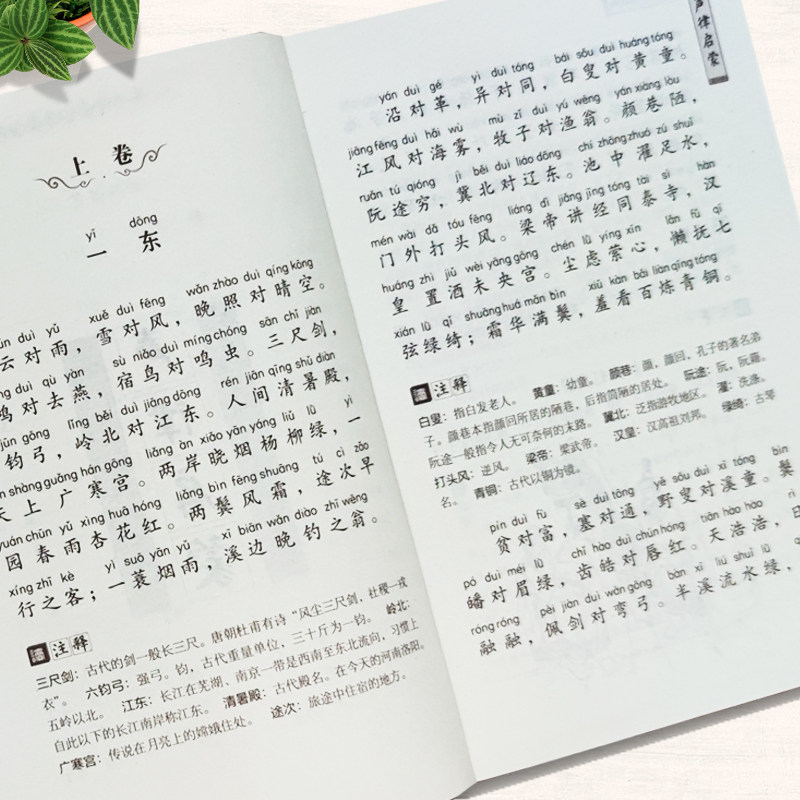 上卷
yī dōng
一 东
duì yǔ xuě duì fēng wǎn zhào duì qíng kōng
云对雨，雪对风，晚照对晴空。
duì qù yàn sù niǎo duì míng chóng sān chǐ jiàn
鸿对去燕，宿鸟对鸣虫。三尺剑，
jūn gōng lǐng běi duì jiāng dōng rén jiān qīng shǔ diàn
钧弓，岭北对江东。人间清暑殿，
shàng guǎng hán gōng liǎng àn xiǎo yān yáng liǔ lǜ yì
天上广寒宫。两岸晓烟杨柳绿，一
yuán chūn yǔ xìng huā hóng liǎng bìn fēng shuāng tú cì zǎo
园春雨杏花红。两鬓风霜，途次早
xíng zhī kè yì suō yān yǔ xī biān wǎn diào zhī wēng
行之客；一蓑烟雨，溪边晚钓之翁。
注释
三尺剑：古代的剑一般长三尺。唐朝杜甫有诗“风尘三尺剑，社稷一戎
衣”。 六钧弓：强弓。钧，古代重量单位，三十斤为一钧。 岭北：
五岭以北。 江东：长江在芜湖、南京一带是西南至东北流向，习惯上
自此以下的长江南岸称江东。 清暑殿：古代殿名。在今天的河南洛阳。
广寒宫：传说在月亮上的嫦娥住处。 途次：旅途中住宿的地方。
声律启蒙
yán duì gé yì duì tóng bái sǒu duì huáng tóng
沿对革，异对同，白叟对黄童。
jiāng fēng duì hǎi wù mù zǐ duì yú wēng yán xiàng lòu
江风对海雾，牧子对渔翁。颜巷陋，
ruǎn tú qióng jì běi duì liáo dōng chí zhōng zhuó zú shuǐ
阮途穷，冀北对辽东。池中濯足水，
mén wài dǎ tóu fēng liáng dì jiǎng jīng tóng tài sì hàn
门外打头风。梁帝讲经同泰寺，汉
huáng zhì jiǔ wèi yāng gōng chén lǜ yíng xīn lǎn fǔ qī
皇置酒未央宫。尘虑萦心，懒抚七
xián lǜ qǐ shuāng huá mǎn bìn xiū kàn bǎi liàn qīng tóng
弦绿绮；霜华满鬓，羞看百炼青铜。
注释
白叟：指白发老人。 黄童：幼童。 颜巷：颜，颜回，孔子的著名弟
子。颜巷本指颜回所居的陋巷，后指简陋的居处。 阮途：阮，阮籍。
阮途一般指令人无可奈何的末路。 冀北：泛指游牧地区。 濯：洗涤。
打头风：逆风。 梁帝：梁武帝。 汉皇：汉高祖刘邦。 绿绮：古琴
名。 青铜：古代以铜为镜。
pín duì fù sè duì tōng yě sǒu duì xī tóng bìn
贫对富，塞对通，野叟对溪童。鬓
pó duì méi lǜ chǐ hào duì chún hóng tiān hào hào
皤对眉绿，齿皓对唇红。天浩浩，日
róng róng pèi jiàn duì wān gōng bàn xī liú shuǐ lǜ
融融，佩剑对弯弓。半溪流水绿，